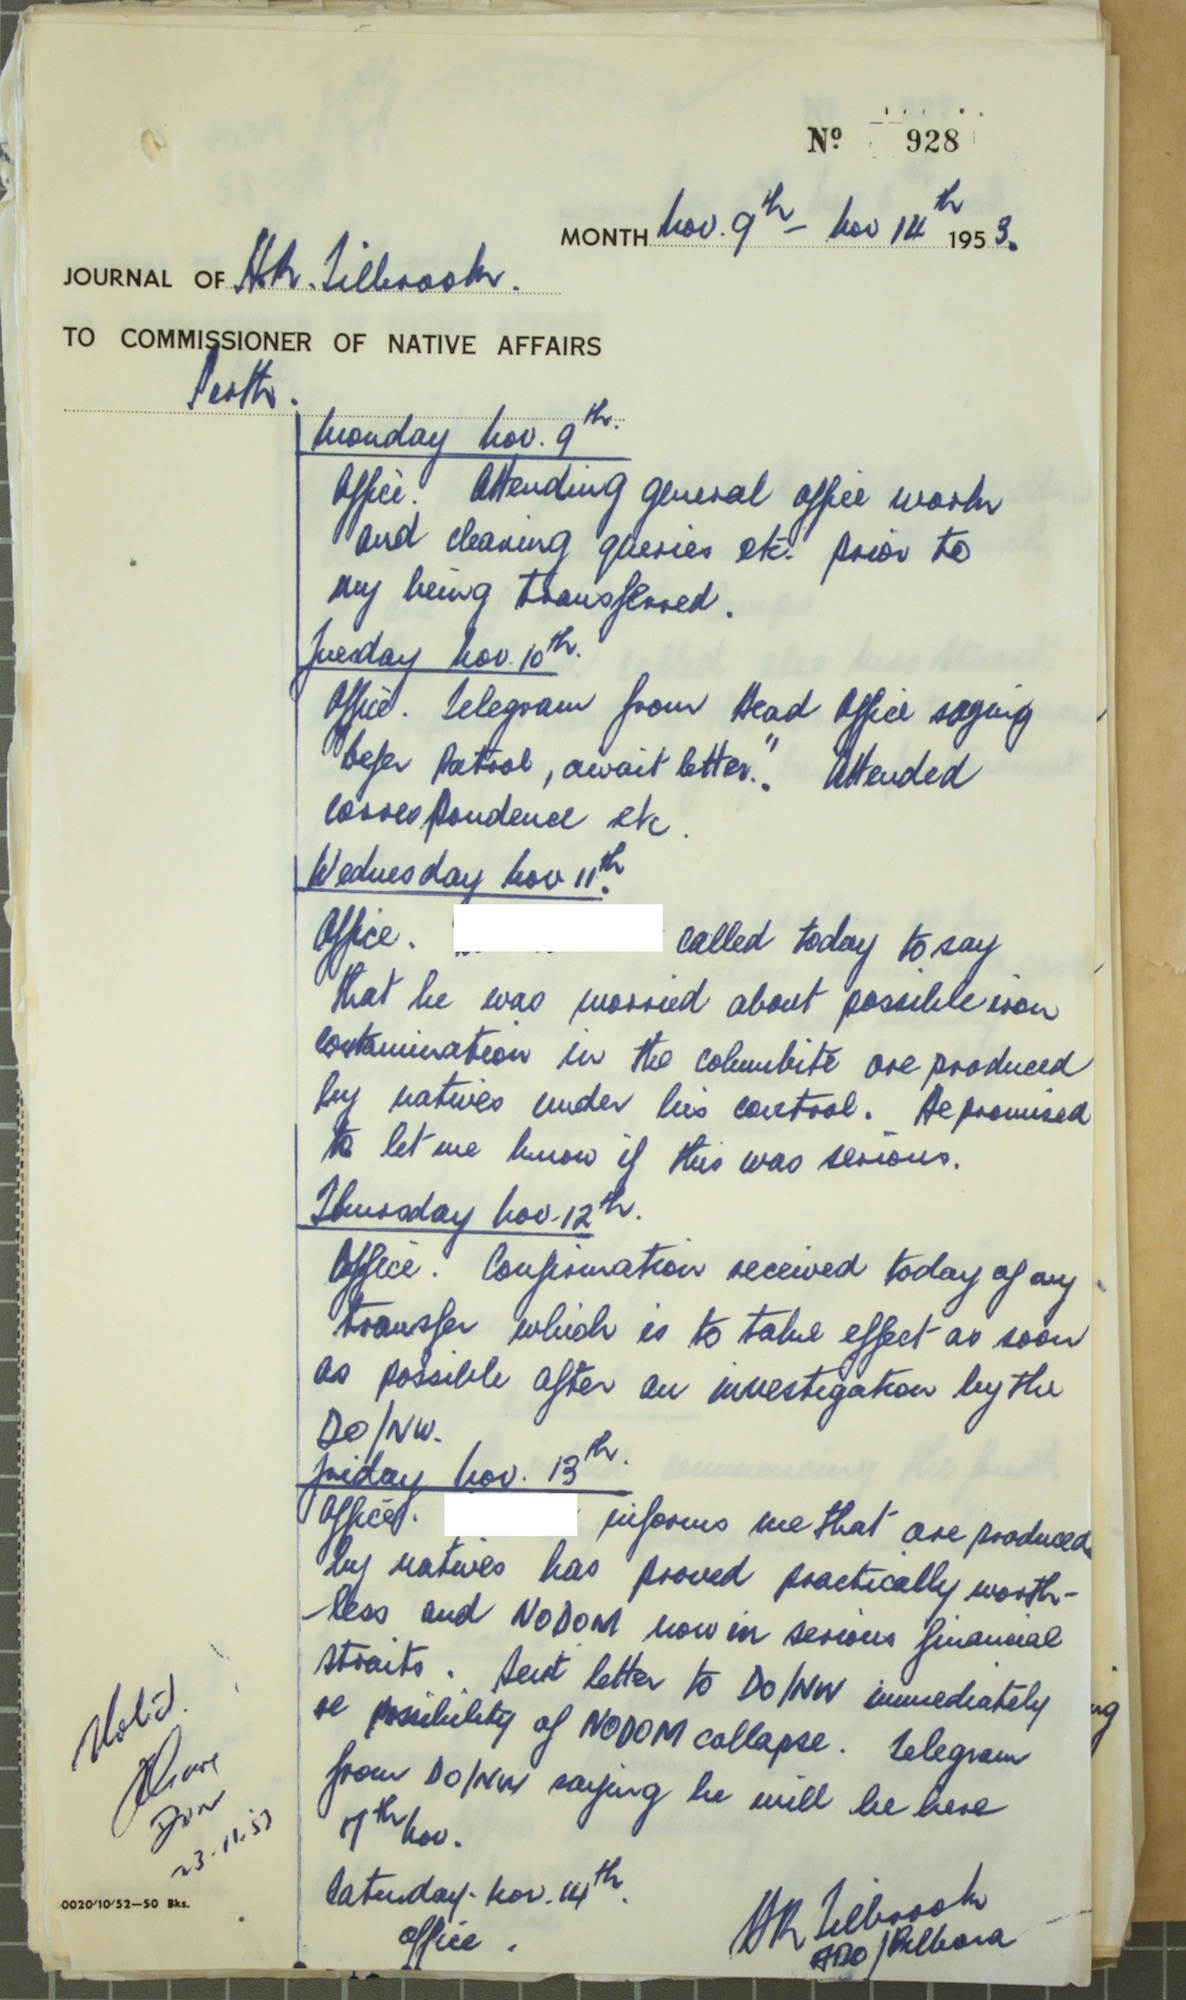 Nº 928
MONTH Nov. 9th – Nov 14th 1953.
JOURNAL OF H.R. Tilbrook.
TO COMMISSIONER OF NATIVE AFFAIRS
Perth.
Monday Nov. 9th.
Office. Attending general office work
and clearing queries etc. prior to
my being transferred.
Tuesday Nov. 10th.
Office. Telegram from Head Office saying
"Defer patrol, await letter." Attended
correspondence etc.
Wednesday Nov 11th.
Office. called today to say
that he was worried about possible iron
contamination in the columbite ore produced
by natives under his control. He promised
to let me know if this was serious.
Thursday Nov. 12th.
Office. Confirmation received today of my
transfer which is to take effect as soon
as possible after an investigation by the
DO/NW.
Friday Nov. 13th.
Office. informs me that ore produced
by natives has proved practically worth-
-less and NODOM now in serious financial
straits. Sent letter to DO/NW immediately
re possibility of NODOM collapse. Telegram
from DO/NW saying he will be here
17th Nov.
Saturday. Nov. 14th.
Office.
HR Tilbrook
ADO/Pilbara
Noted.
23.11.53
0020/10/52—50 Bks.